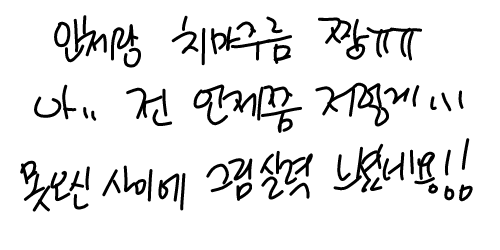 안쳐랑 치마주름 짱ㅠㅠ
아.. 전 언제쯤 저렇게...
못오신 사이에 그림실력 느셨네용!!